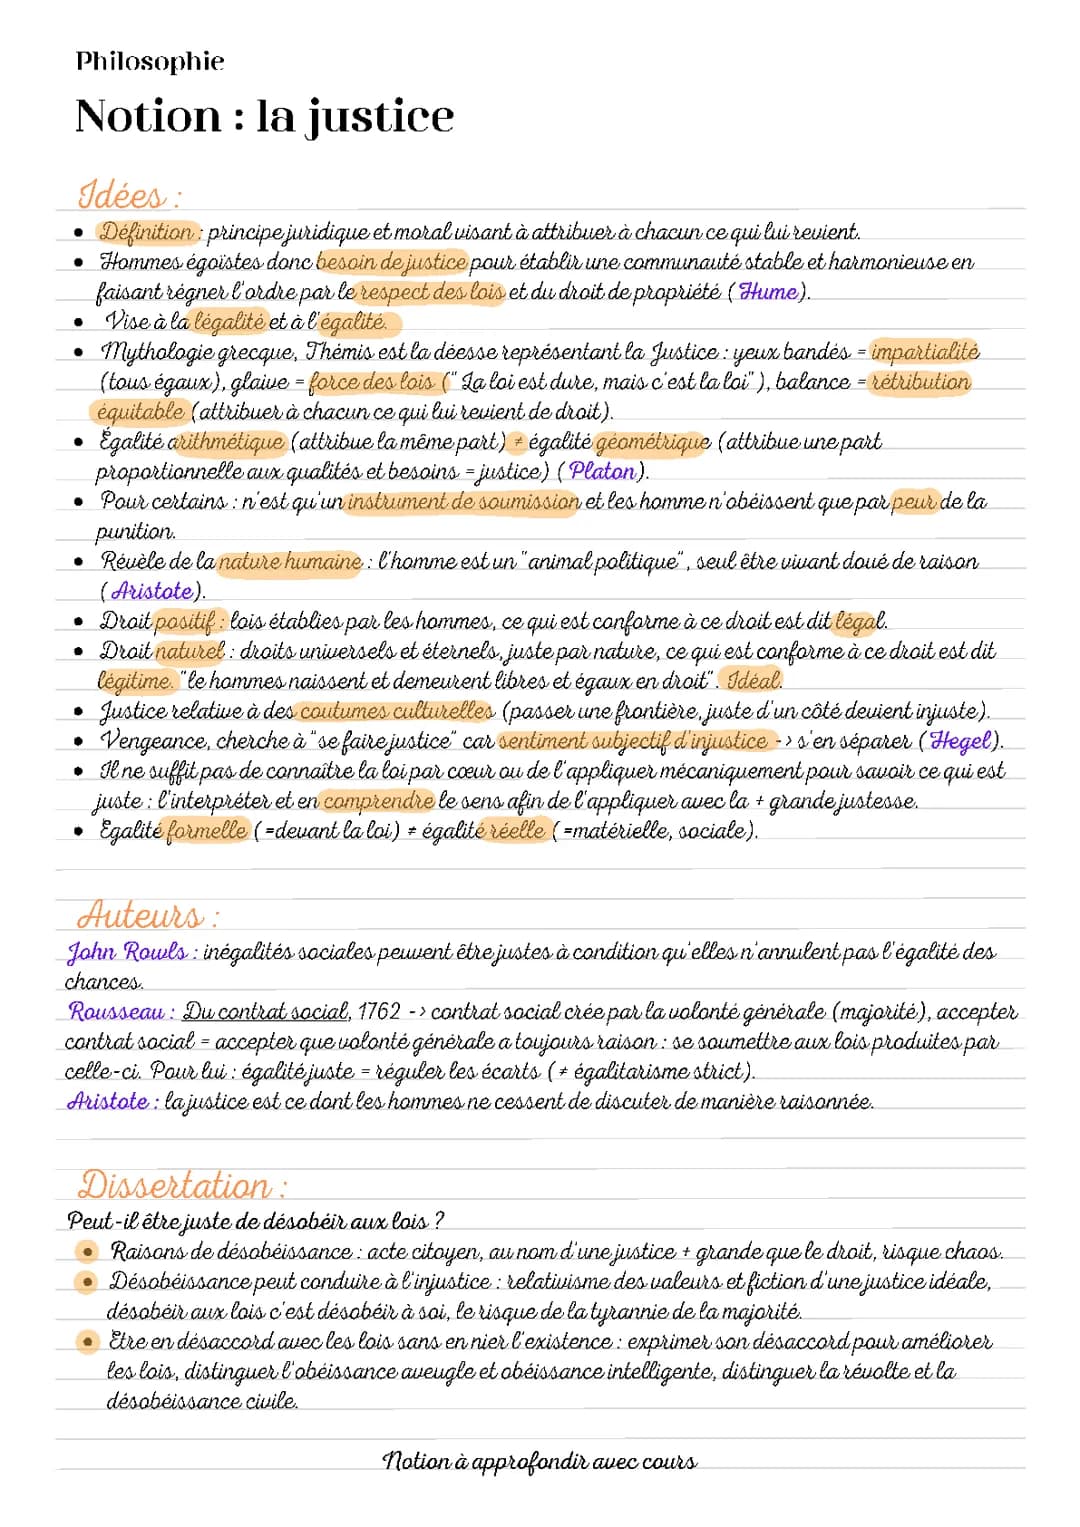 Philosophie
Notion : la justice
Idées :
• Définition : principe juridique et moral visant à attribuer à chacun ce qui lui revient.
• Hommes égoïstes donc besoin de justice pour établir une communauté stable et harmonieuse en
faisant régner l'ordre par le respect des lois et du droit de propriété (Hume).
• Vise à la légalité et à l'égalité.
• Mythologie grecque, Thémis est la déesse représentant la Justice : yeux bandés = impartialité
(tous égaux), glaive = force des lois (" La loi est dure, mais c'est la loi" ), balance = rétribution
équitable (attribuer à chacun ce qui lui revient de droit).
• Égalité arithmétique (attribue la même part) ≠ égalité géométrique (attribue une part
proportionnelle aux qualités et besoins = justice) (Platon).
• Pour certains : n'est qu'un instrument de soumission et les homme n'obéissent que par peur de la
punition.
• Révèle de la nature humaine : l'homme est un "animal politique", seul être vivant doué de raison
(Aristote).
• Droit positif : lois établies par les hommes, ce qui est conforme à ce droit est dit légal.
• Droit naturel : droits universels et éternels, juste par nature, ce qui est conforme à ce droit est dit
légitime. "le hommes naissent et demeurent libres et égaux en droit". Idéal.
• Justice relative à des coutumes culturelles (passer une frontière, juste d'un côté devient injuste).
• Vengeance, cherche à "se faire justice" car sentiment subjectif d'injustice -> s'en séparer (Hegel).
• Il ne suffit pas de connaître la loi par cœur ou de l'appliquer mécaniquement pour savoir ce qui est
juste : l'interpréter et en comprendre le sens afin de l'appliquer avec la + grande justesse.
• Egalité formelle (=devant la loi) ≠ égalité réelle (=matérielle, sociale).
Auteurs :
John Rowls : inégalités sociales peuvent être justes à condition qu'elles n'annulent pas l'égalité des
chances.
Rousseau : Du contrat social, 1762 -> contrat social crée par la volonté générale (majorité), accepter
contrat social = accepter que volonté générale a toujours raison : se soumettre aux lois produites par
celle-ci. Pour lui : égalité juste = réguler les écarts (≠ égalitarisme strict).
Aristote : la justice est ce dont les hommes ne cessent de discuter de manière raisonnée.
Dissertation :
Peut-il être juste de désobéir aux lois ?
• Raisons de désobéissance : acte citoyen, au nom d'une justice + grande que le droit, risque chaos.
• Désobéissance peut conduire à l'injustice : relativisme des valeurs et fiction d'une justice idéale,
désobéir aux lois c'est désobéir à soi, le risque de la tyrannie de la majorité.
• Etre en désaccord avec les lois sans en nier l'existence : exprimer son désaccord pour améliorer
les lois, distinguer l'obéissance aveugle et obéissance intelligente, distinguer la révolte et la
désobéissance civile.
Notion à approfondir avec cours